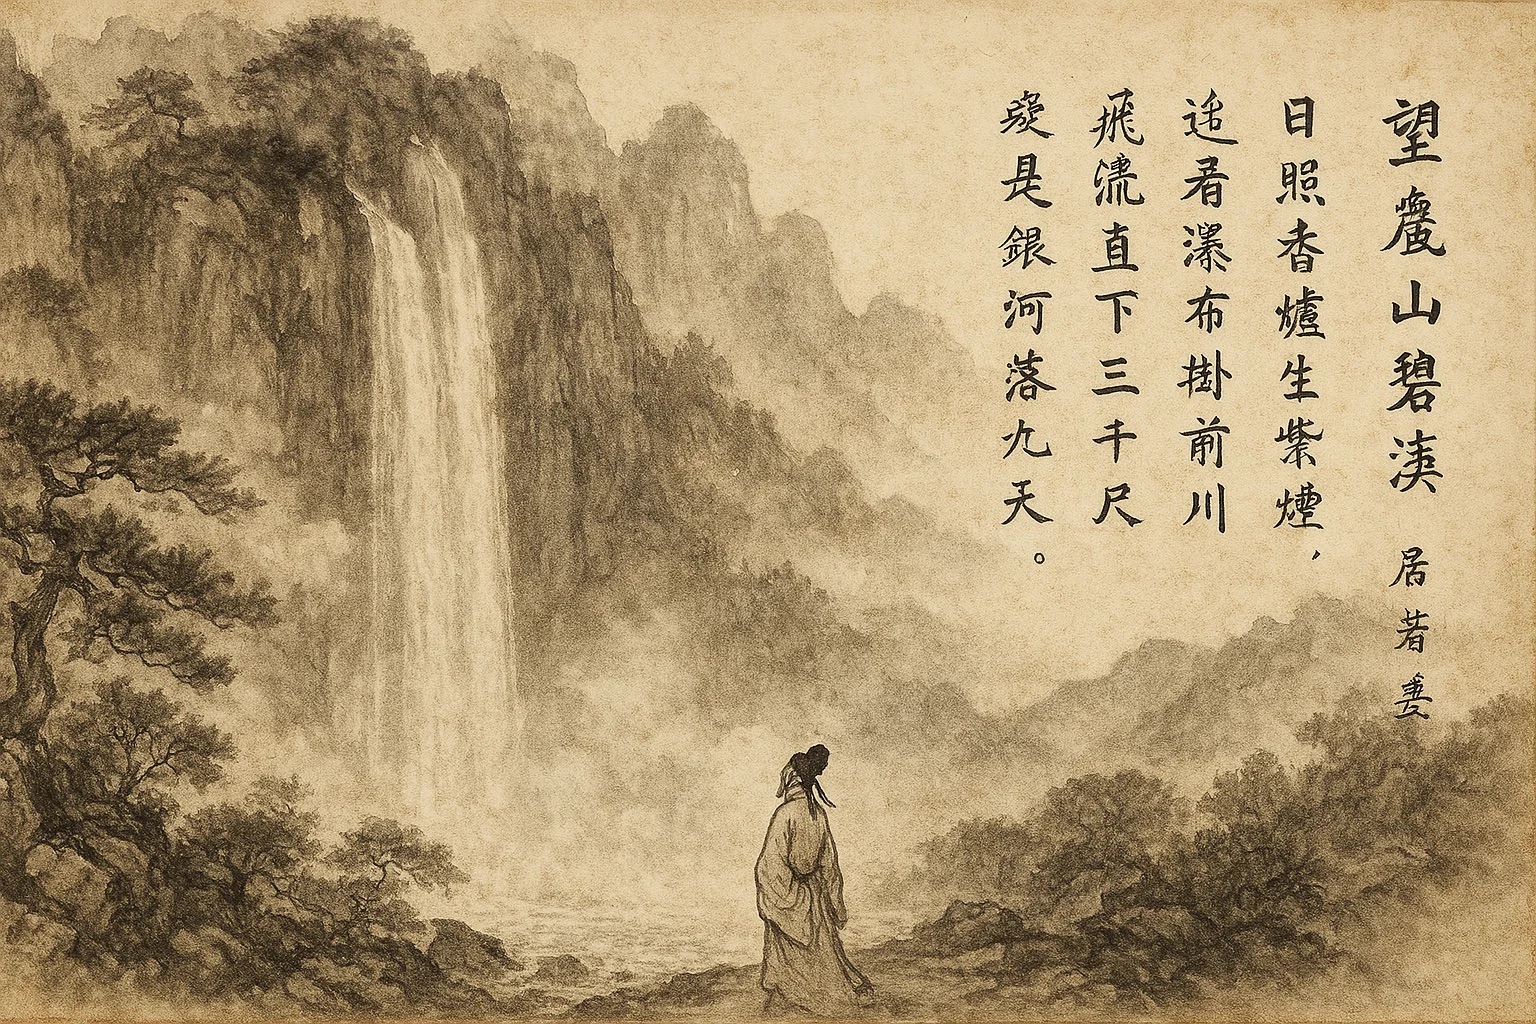 望廬山碧
日照香爐生紫煙，
看瀑布掛前川
飛流直下三千尺
是銀河落九天。
居若